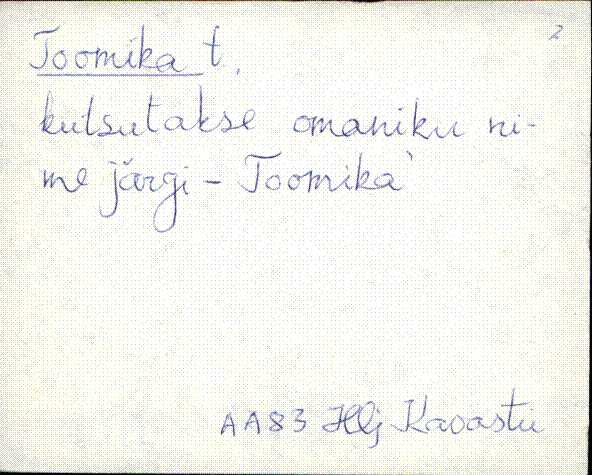 2
Toomika t.
kutsutakse omaniku ni-
me järgi - Toomika`
AA83 Hlj Kavastu